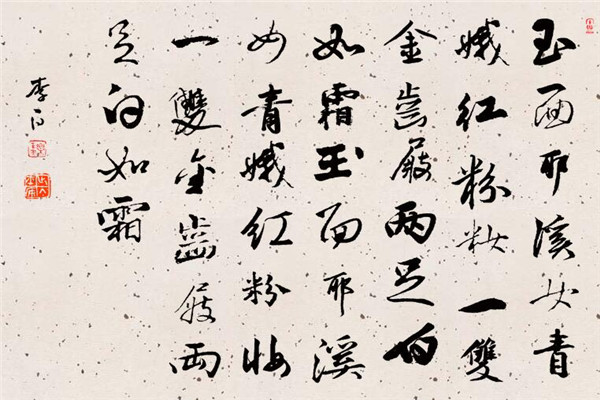 玉面耶溪女青
娥红粉妆一雙
金齒屐两足白
如霜玉面耶溪
女青娥红粉妆
一雙金齒屐两
足白如霜
李白